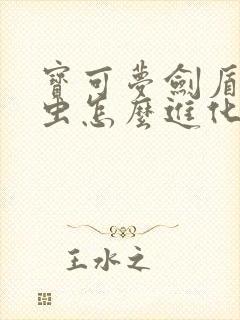 寶可夢劍盾
虫怎麼進化
王水之